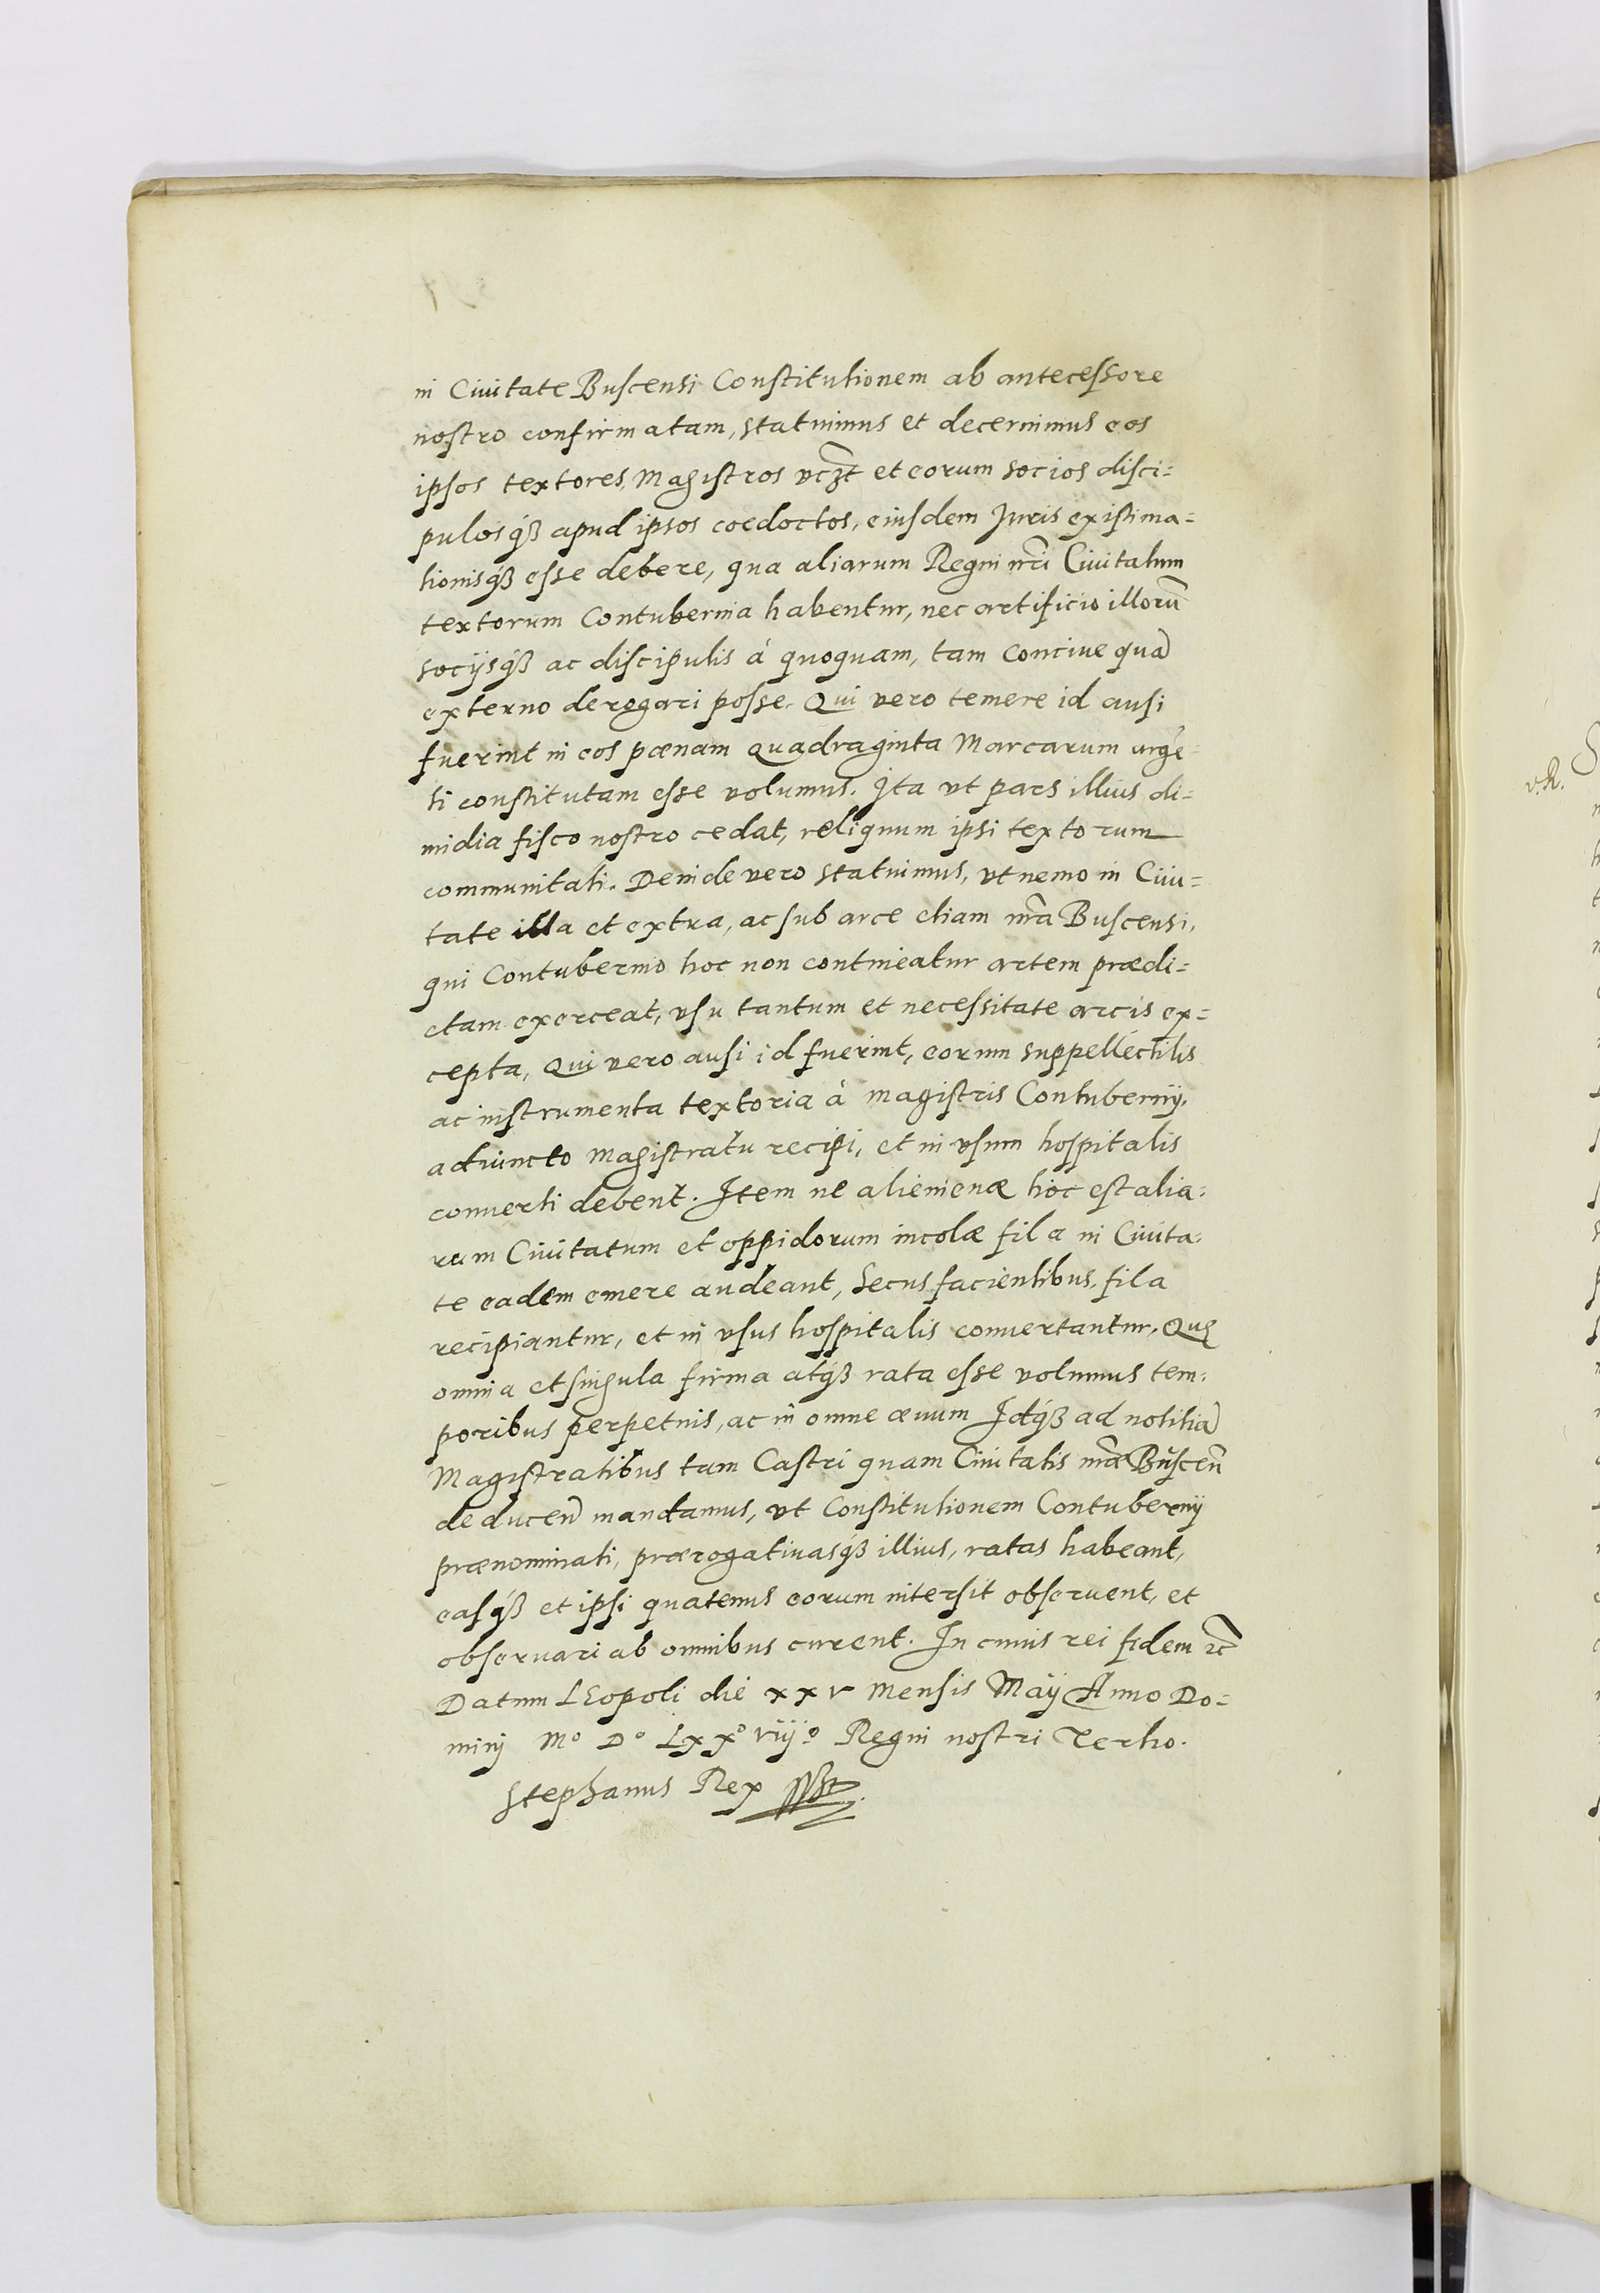 in Ciuitate Buscensi Constitutionem ab antecessore
nostro confirmatam, statuimus et decernimus eos
ipsos textores, Magistros vczt et eorum socios disci=
pulosq́ʒ apud ipsos coedoctos, eiusdem Juris existima=
tionisq́ʒ esse debere, qua aliarum Regni nr̃i Ciuitatum
textorum Contubernia habentur, nec artificio illorũ
socijsq́ʒ ac discipulis à quoquam, tam Conciue quã
externo derogari posse. Qui vero temere id ausi
fuerint in eos pœnam quadraginta Marcarum arge=
ti constitutam esse volumus. Ita vt pars illius di=
midia fisco nostro cedat, reliquum ipsi textorum
communitati. Deinde vero statuimus, vt nemo in Ciui=
tate illa et extra, ac sub arce etiam nr̃a Buscensi,
qui Contubernio hoc non contineatur artem prædi=
ctam exerceat, vsu tantum et necessitate arcis ex=
cepta, Qui vero ausi id fuerint, eorum suppellectilis
ac instrumenta textoria à magistris Contubernij,
adiuncto Magistratu recipi, et in vsum hospitalis
conuerti debent. Item ne alienienæ hoc est alia=
rum Ciuitatum et oppidorum incolæ fila in Ciuita=
te eadem emere audeant, Secus facientibus fila
recipiantur, et in vsus hospitalis conuertantur. Quę
omnia et singula firma atq́ʒ rata esse volumus tem=
poribus perpetuis, ac in omne æuum Idq́ʒ ad notitiã
Magistratibus tam Castri quam Ciuitatis nr̃æ Buscen̄
deducen̄ mandamus, vt Constitutionem Contubernij
prænominati, prærogatiuasq́ʒ illius, ratas habeant,
easq́ʒ et ipsi quatenus eorum intersit obseruent, et
obseruari ab omnibus curent. In cuius rei fidem ꝛc̃
Datum LEopoli die xxv Mensis Maij Anno Do=
minj Mº Dº Lxxº viijº Regni nostri Tertio.
Stephanus Rex
v.R.